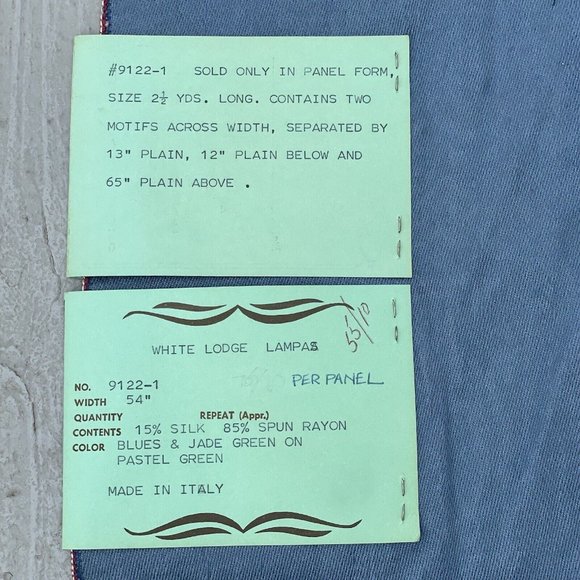 #9122-1 SOLD ONLY IN PANEL FORM,
SIZE 2½ YDS. LONG. CONTAINS TWO
MOTIFS ACROSS WIDTH, SEPARATED BY
13" PLAIN, 12" PLAIN BELOW AND
65" PLAIN ABOVE .
WHITE LODGE LAMPAS
PER PANEL
NO. 9122-1
WIDTH 54"
QUANTITY REPEAT (Appr.)
CONTENTS 15% SILK 85% SPUN RAYON
COLOR BLUES & JADE GREEN ON
PASTEL GREEN
MADE IN ITALY